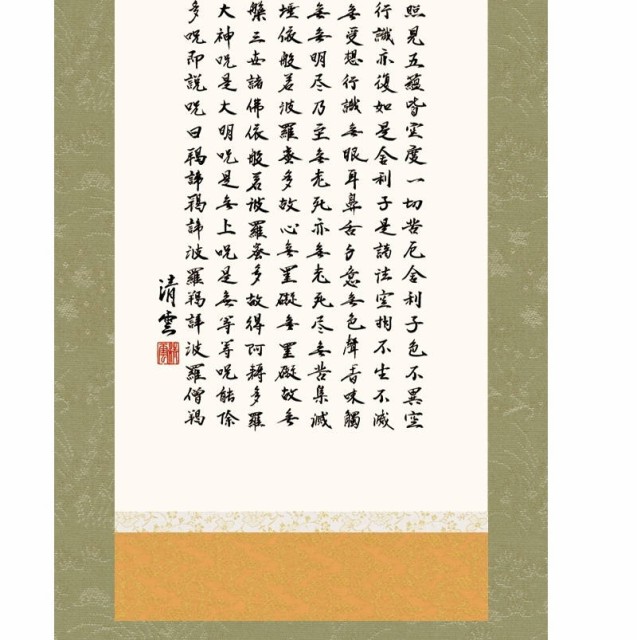 照見五蘊皆空度一切苦厄舍利子色不異空
行識亦復如是舍利子是諸法空相不生不滅
無受想行識無眼耳鼻舌身意無色聲香味觸
無無明尽乃至無老死亦無老死尽無苦集滅
埵依般若波羅蜜多故心無罣礙無罣礙故無
槃三世諸佛依般若波羅蜜多故得阿耨多羅
大神呪是大明呪是無上呪是無等等呪能除
多呪即説呪曰羯諦羯諦波羅羯諦波羅僧羯
清雲